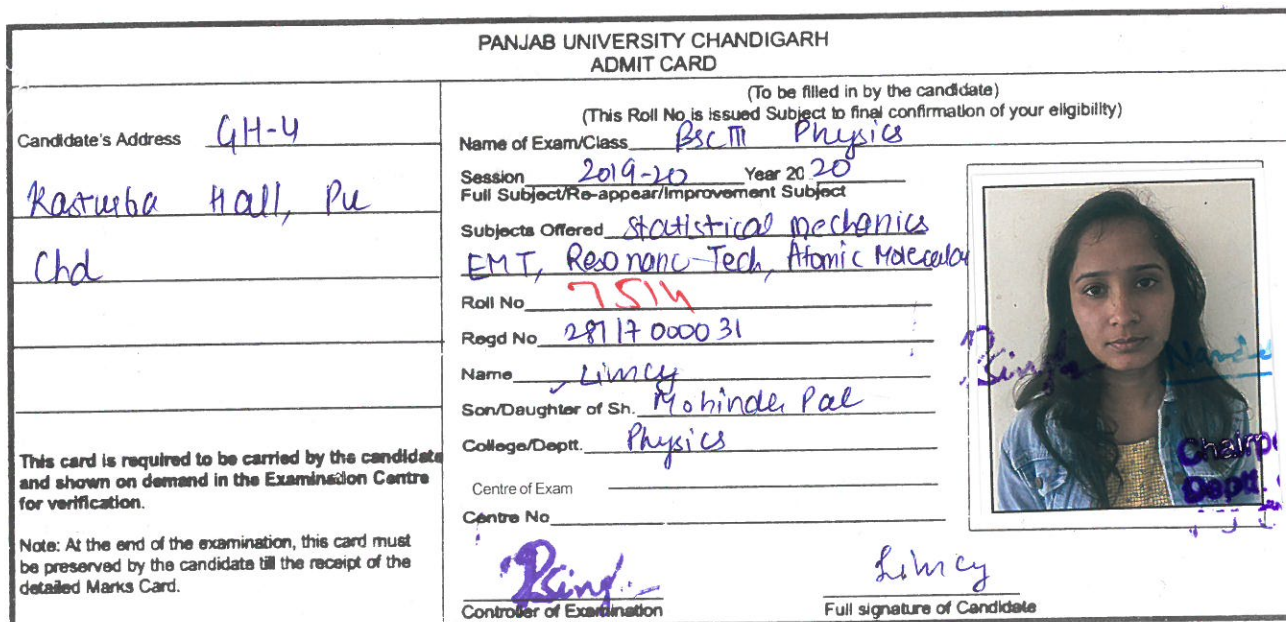 PANJAB UNIVERSITY CHANDIGARH
ADMIT CARD
Candidate's Address GH-4
Kasturba Hall, Pu
Chd
This card is required to be carried by the candidate
and shown on demand in the Examination Centre
for verification.
Note: At the end of the examination, this card must
be preserved by the candidate till the receipt of the
detailed Marks Card.
(To be filled in by the candidate)
(This Roll No is issued Subject to final confirmation of your eligibility)
Name of Exam/Class BSC III Physics
Session 2019-20 Year 2020
Full Subject/Re-appear/Improvement Subject
Subjects Offered Statistical mechanics
EMT, Resonanc-Tech, Atomic Molecular
Roll No 7514
Regd No 28117000031
Name Limcy
Son/Daughter of Sh. Mohinder Pal
College/Deptt. Physics
Centre of Exam
Centre No
Controller of Examination
Limcy
Full signature of Candidate
Chairpe
Deptt.